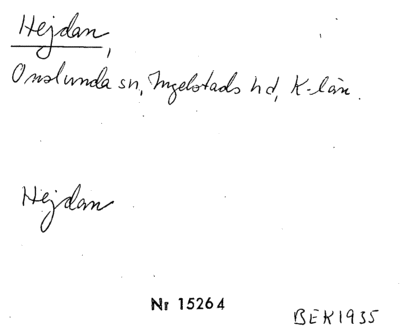 Hejdan,
Onslunda sn, Ingelstads hd, K-län.
Hejdan
Nr 15264
BEK1935